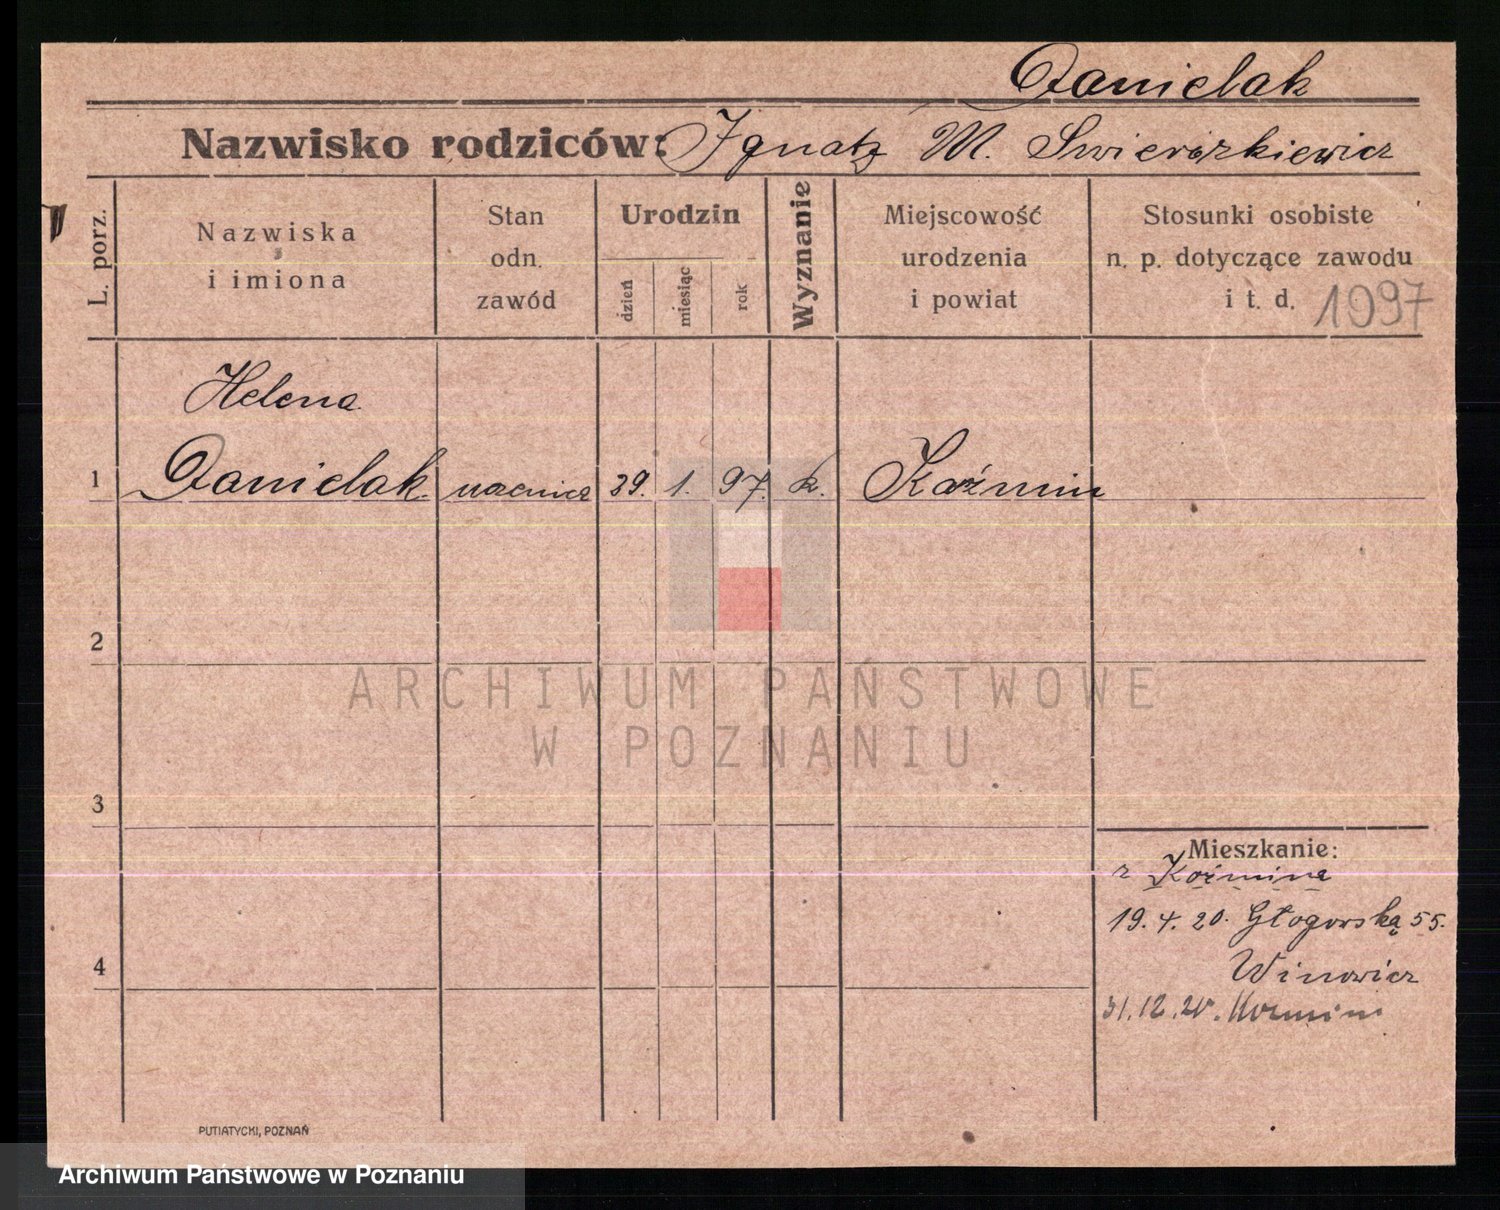 Danielak
Nazwisko rodziców: Ignatz M. Swierczkiewicz
L. porz.
Nazwiska
i imiona
Stan
odn.
zawód
Urodzin
dzień
miesiąc
rok
Wyznanie
Miejscowość
urodzenia
i powiat
Stosunki osobiste
n. p. dotyczące zawodu
i t. d. 1997
Helena
1 Danielak uczenica 29. 1. 97. k. Koźmin
2
3
4
Mieszkanie:
z Koźmina
19. 4. 20. Głogowską 55.
Winowicz
31.12.20. Kozmin
PUTIATYCKI, POZNAŃ
ARCHIWUM PAŃSTWOWE
W POZNANIU
Archiwum Państwowe w Poznaniu